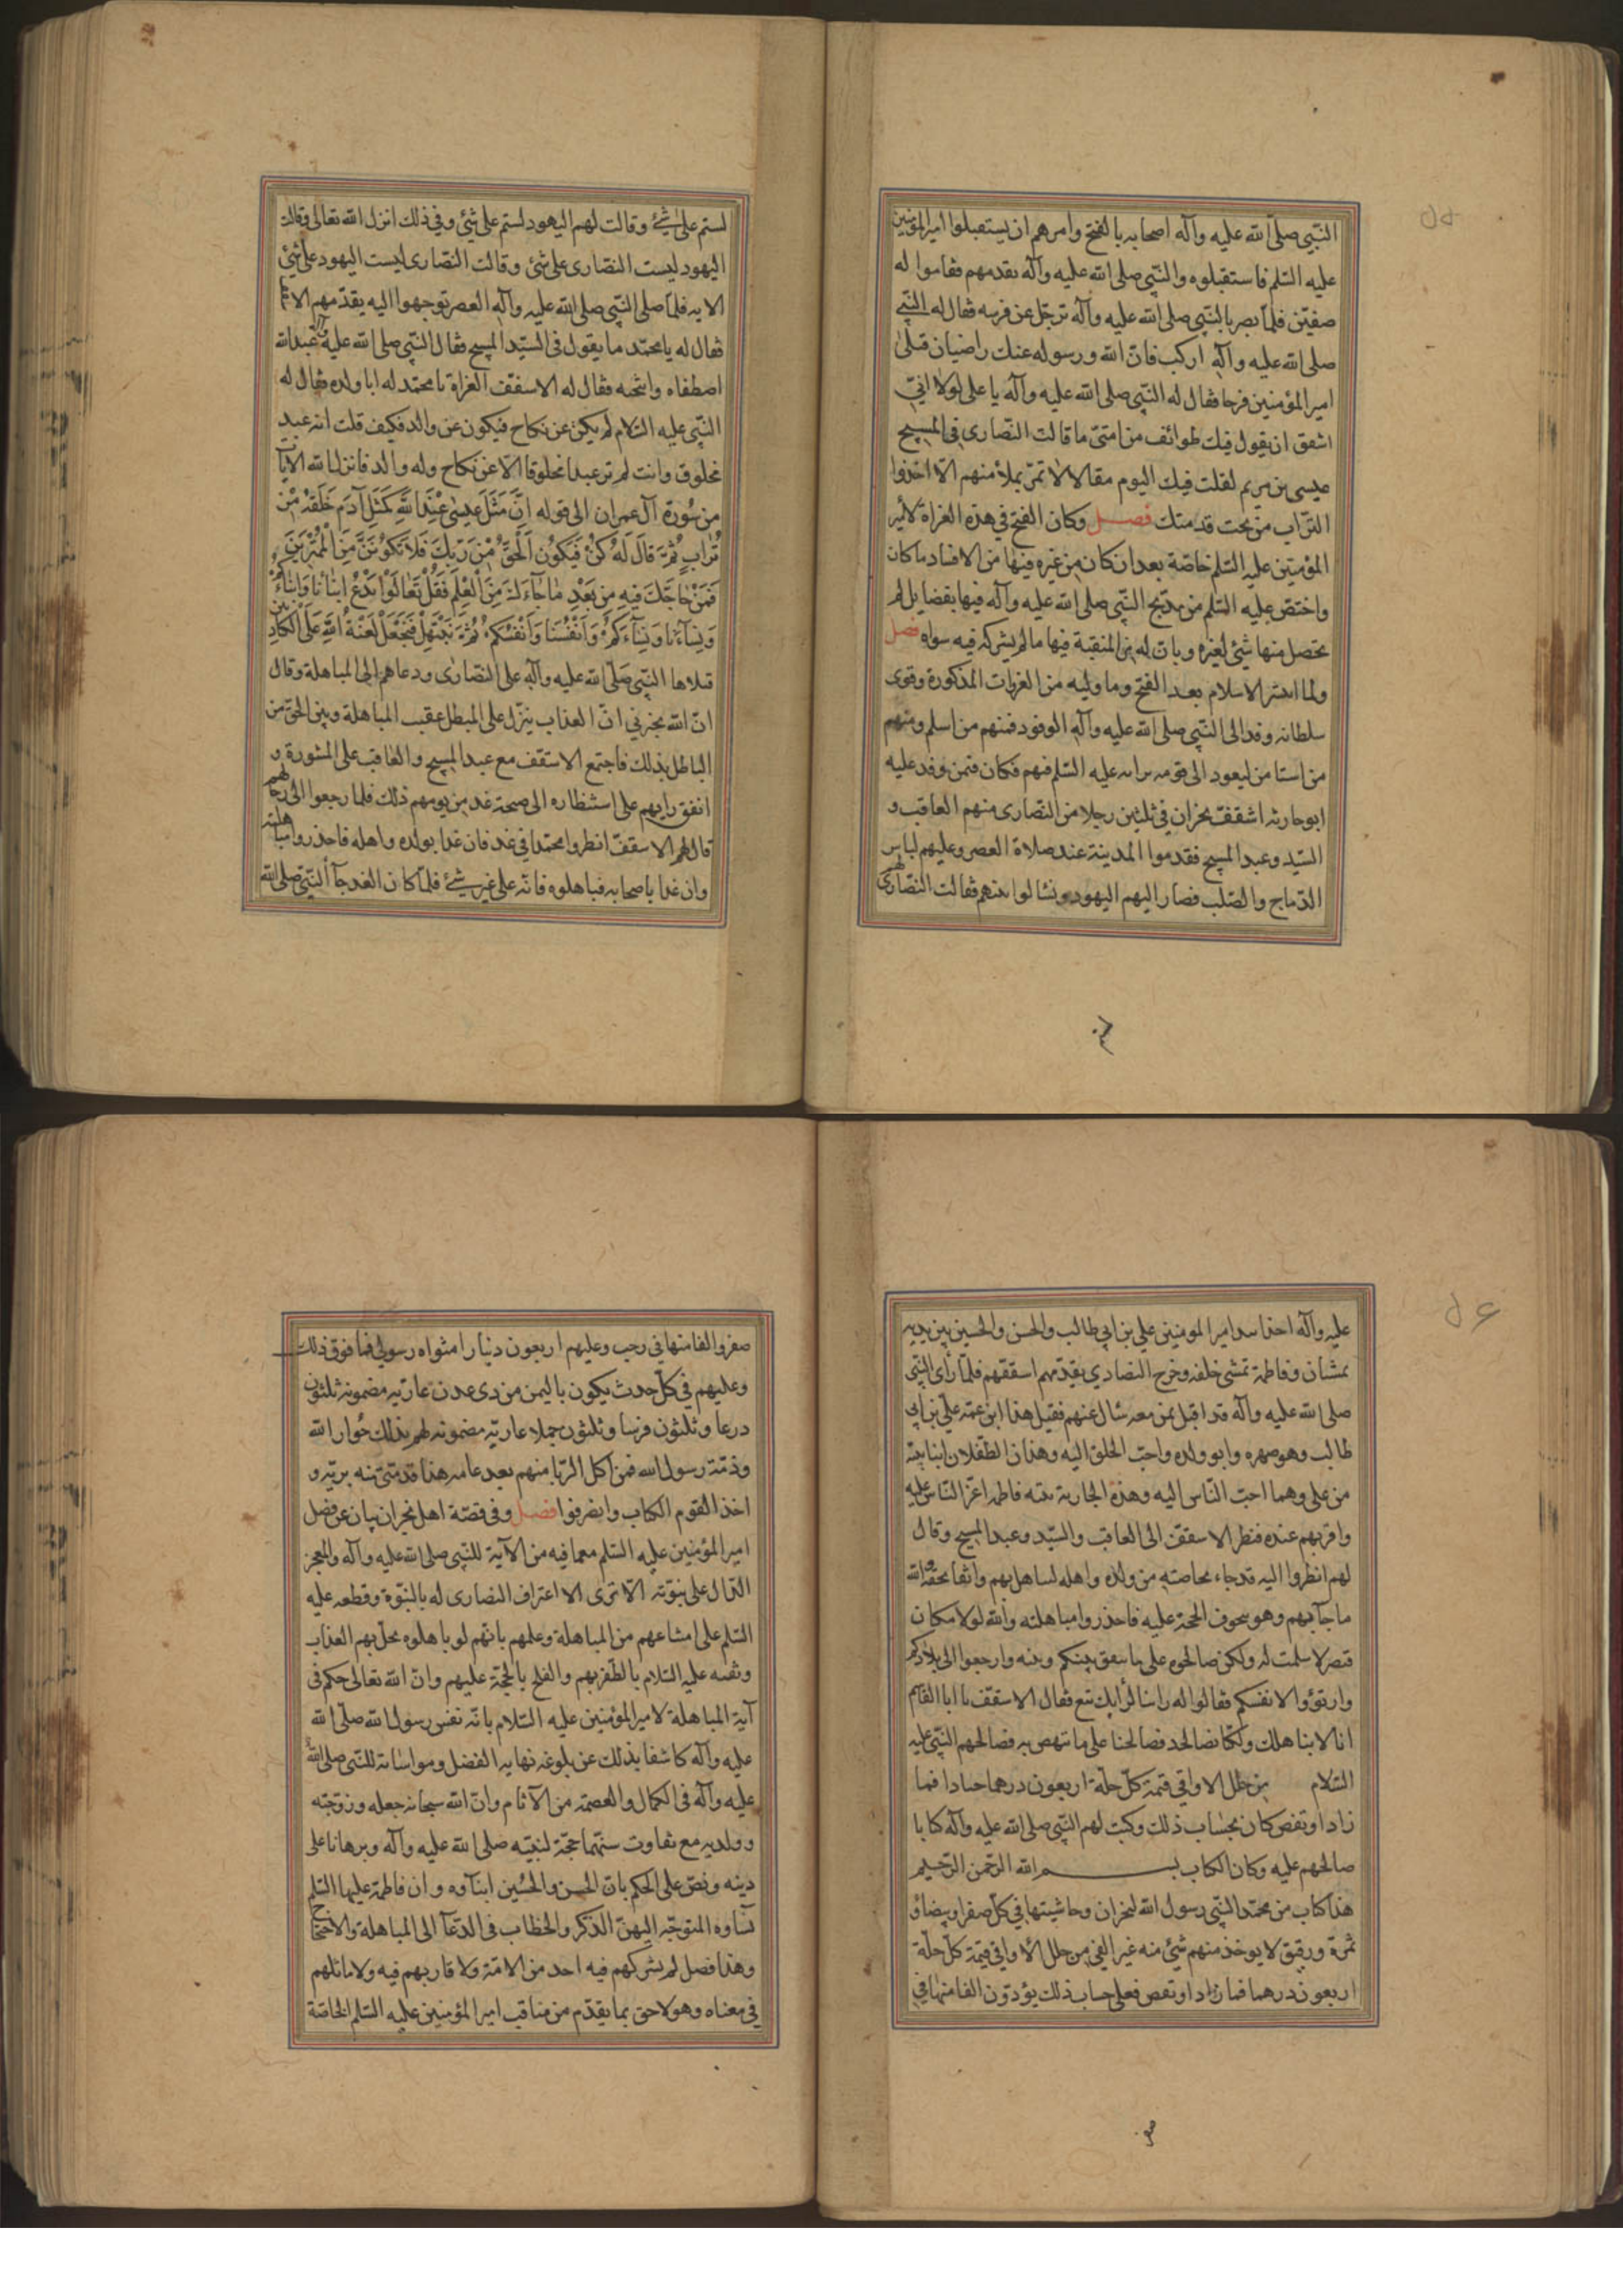 النبي صلى الله عليه وآله اصحابه بالفتح وامرهم ان يستقبلوا امير المؤمنين
عليه السلم فاستقبلوه والنبي صلى الله عليه وآله يقدمهم فقاموا له
صفين فلما بصر بالنبي صلى الله عليه وآله ترجل عن فرسه فقال له النبي
صلى الله عليه وآله اركب فان الله ورسوله عنك راضيان فبكى
امير المؤمنين فرحا فقال له النبي صلى الله عليه وآله يا علي لولا انني
اشفق ان يقول فيك طوائف من امتي ما قالت النصارى في المسيح
عيسى بن مريم لقلت فيك اليوم مقالا لا تمر بملأ منهم الا اخذوا
التراب من تحت قدمتك فصل وكان الفتح في هذه الغزاة لامير
المؤمنين عليه السلم خاصة بعد ان كان من غيره فيها من الافساد ما كان
واختص عليه السلم من مديح النبي صلى الله عليه وآله فيها بفضايل لم
يحصل منها شئ لغيره وبان له من المنقبة فيها ما لم يشركه فيه سواه فصل
ولما انتشر الاسلام بعد الفتح وما وليه من الغزوات المذكورة وقوى
سلطانه وفد الى النبي صلى الله عليه وآله الوفود فمنهم من اسلم ومنهم
من استامن ليعود الى قومه برايه عليه السلم فيهم فكان فمن وفد عليه
ابو حارثه اشقفّ نجران في ثلثين رجلا من النصارى منهم العاقب و
السيد وعبد المسيح فقدموا المدينة عند صلاة العصر وعليهم لباس
الديباج والصلب فصار اليهم اليهود وتسالوا بينهم فقالت النصارى لهم
لستم على شئ وقالت لهم اليهود لستم على شئ وفي ذلك انزل الله تعالى وقالت
اليهود ليست النصارى على شئ وقالت النصارى ليست اليهود على شئ
الايه فلما صلى النبي صلى الله عليه وآله العصر توجهوا اليه يقدمهم الاسقف
فقال له يا محمد ما يقول في السيد المسيح فقال النبي صلى الله عليه وآله عبد الله
اصطفاه وانتجبه فقال له الاسقف اتعرفه يا محمد له ابا ولده فقال له
النبي عليه السلام لم يكن عن نكاح فيكون عن والد فكيف قلت انه عبد
مخلوق وانت لم تر عبدا مخلوقا الا عن نكاح وله والد فانزل الله الايات
من سُورة آل عمران الى قوله اِنَّ مَثَلَ عِيسٰى عِنْدَ اللهِ كَمَثَلِ آدَمَ خَلَقَهُ مِنْ
تُرَابٍ ثُمَّ قَالَ لَهُ كُنْ فَيَكُونُ اَلْحَقُّ مِنْ رَبِّكَ فَلَا تَكُونَنَّ مِنَ الْمُمْتَرِينَ
فَمَنْ حَاجَّكَ فِيهِ مِنْ بَعْدِ مٰا جٰاءَكَ مِنَ الْعِلْمِ فَقُلْ تَعٰالَوْا نَدْعُ ابْنٰاءَنٰا وَاَبْنٰاءَكُمْ
وَنِسآءَنا وَنِسآءَكُمْ وَاَنْفُسَنَا وَاَنْفُسَكُمْ ثُمَّ نَبْتَهِلْ فَنَجْعَلْ لَعْنَةَ اللهِ عَلَى الْكَاذِبِين
فتلاها النبي صلى الله عليه وآله على النصارى ودعاهم الى المباهلة وقال
ان الله يخبرني ان العذاب ينزل على المبطل عقيب المباهلة ويبين الحق من
الباطل بذلك فاجتمع الاسقف مع عبد المسيح والعاقب على المشورة و
اتفق رايهم على استنظاره الى صبحة غد من يومهم ذلك فلما رجعوا الى رحالهم
قال لهم الاسقفّ انظروا محمدا في غد فان غدا بولده واهله فاحذروا مباهلته
وان غدا باصحابه فباهلوه فانه على غير شئ فلما كان الغد جآء النبي صلى الله
عليه وآله اخذا بيد امير المومنين علي بن ابي طالب والحسن والحسين بين يديه
يمشيان وفاطمة تمشي خلفه وخرج النصارى يقدمهم اسقفهم فلما رأى النبي
صلى الله عليه وآله قد اقبل بمن معه سال عنهم فقيل هذا ابن عمه علي بن ابي
طالب وهو صهره وابو ولده واحب الخلق اليه وهذان الطفلان ابنا بنته
من علي وهما احب الناس اليه وهذه الجارية بنته فاطمة اعز الناس عليه
واقربهم عنده فنظر الاسقفّ الى العاقب والسيد وعبد المسيح وقال
لهم انظروا اليه قد جاء بخاصته من ولده واهله ليباهل بهم واثقا بحقه والله
ما جآ بهم وهو يتخوف الحجة عليه فاحذروا مباهلته والله لولا مكان
قيصر لاسلمت له ولكن صالحوه على ما يتفق بينكم وبينه وارجعوا الى بلادكم
وارتؤوا لانفسكم فقالوا له راينا لرايك تبع فقال الاسقفّ يا ابا القاسم
انا لا نباهلك ولكنا نصالحك فصالحنا على ما ننهض به فصالحهم النبي عليه
السلام من حلل الاواقي قيمة كل حلة اربعون درهما جيادا فما
زاد او نقص كان بحساب ذلك وكتب لهم النبي صلى الله عليه وآله كتابا
صالحهم عليه وكان الكتاب بسم الله الرحمن الرحيم
هذا كتاب من محمد النبي رسول الله لنجران وحاشيتها في كل صفراء وبيضاء و
ثمرة ورقيق لا يوخذ منهم شئ منه غير الفي من حلل الاواقي قيمة كل حلة
اربعون درهما فما زاد او نقص فعلى حساب ذلك يؤدون الفا منها في
صفر والفا منها في رجب وعليهم اربعون دينارا مثواه رسولي فما فوق ذلك
وعليهم في كل حدث يكون باليمن من ذي عدن عارية مضمونة ثلثون
درعا وثلثون فرسا وثلثون جملا عارية مضمونه لهم بذلك جوار الله
وذمة رسول الله فمن اكل الربا منهم بعد عامهم هذا فذمتي منه برية و
اخذ القوم الكتاب وانصرفوا فصل وفي قصة اهل نجران بيان عن فضل
امير المؤمنين عليه السلم مع ما فيه من الآية للنبي صلى الله عليه وآله والمعجز
الدال على نبوته الا ترى الا اعتراف النصارى له بالنبوة وقطعه عليه
السلم على امتناعهم من المباهلة وعلمهم بانهم لو باهلوه لحل بهم العذاب
وثقته عليه السلام بالظفر بهم والفلج بالحجة عليهم وان الله تعالى حكم في
آية المباهلة لامير المؤمنين عليه السلام بانه نفس رسول الله صلى الله
عليه وآله كاشفا بذلك عن بلوغه نهاية الفضل ومواساته للنبي صلى الله
عليه وآله في الكمال والعصمة من الآثام وان الله سبحانه جعله وزوجته
وولديه مع تفاوت سنهما حجة لنبيه صلى الله عليه وآله وبرهانا على
دينه ونص على الحكم بان الحسن والحسين ابنآوه وان فاطمة عليها السلم
نسآوه المتوجه اليهن الذكر والخطاب في الدعآ الى المباهلة والاحتجاج
وهذا فضل لم يشركهم فيه احد من الامة ولا قاربهم فيه ولا ماثلهم
في معناه وهو لاحق بما يقدم من مناقب امير المؤمنين عليه السلم الخاصة